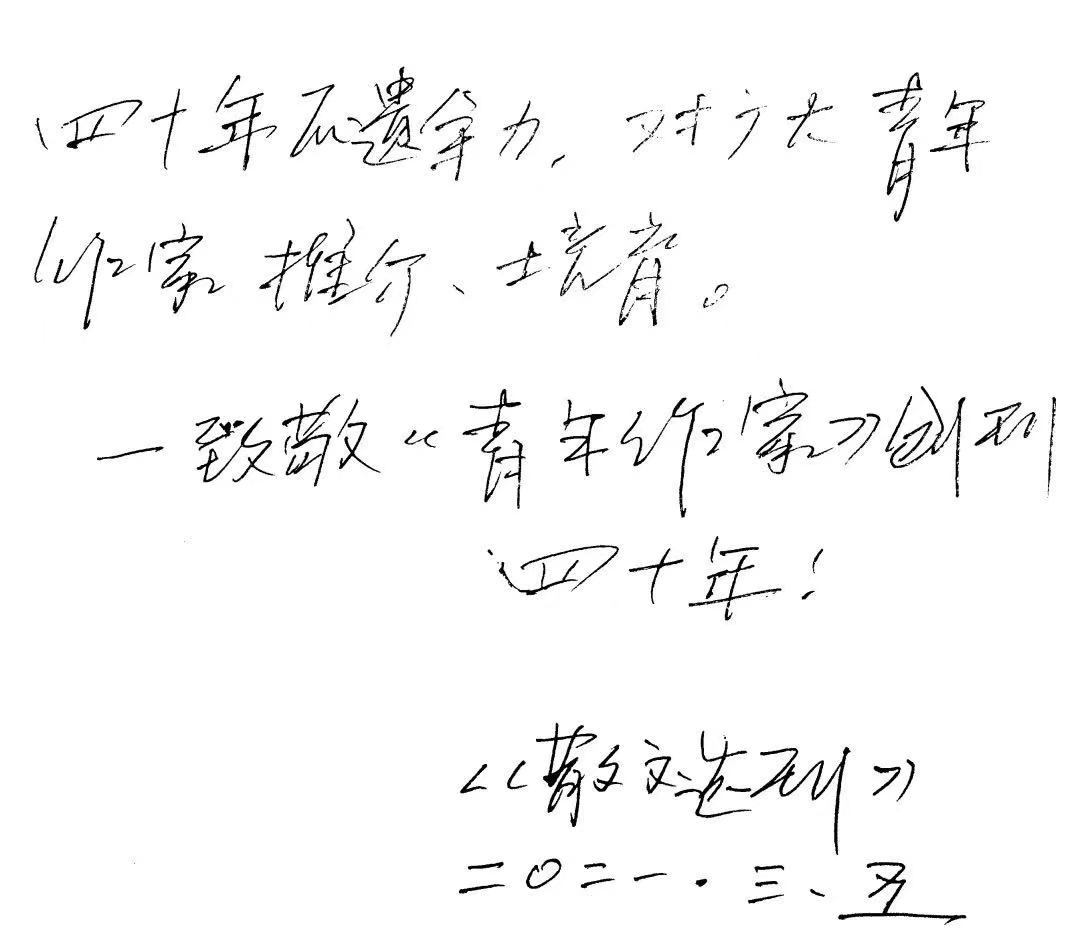 四十年不遗余力,对扩大青年
作家推介、培育。
一致敬《青年作家》创刊
四十年!
《散文选刊》
二〇二一.三、五